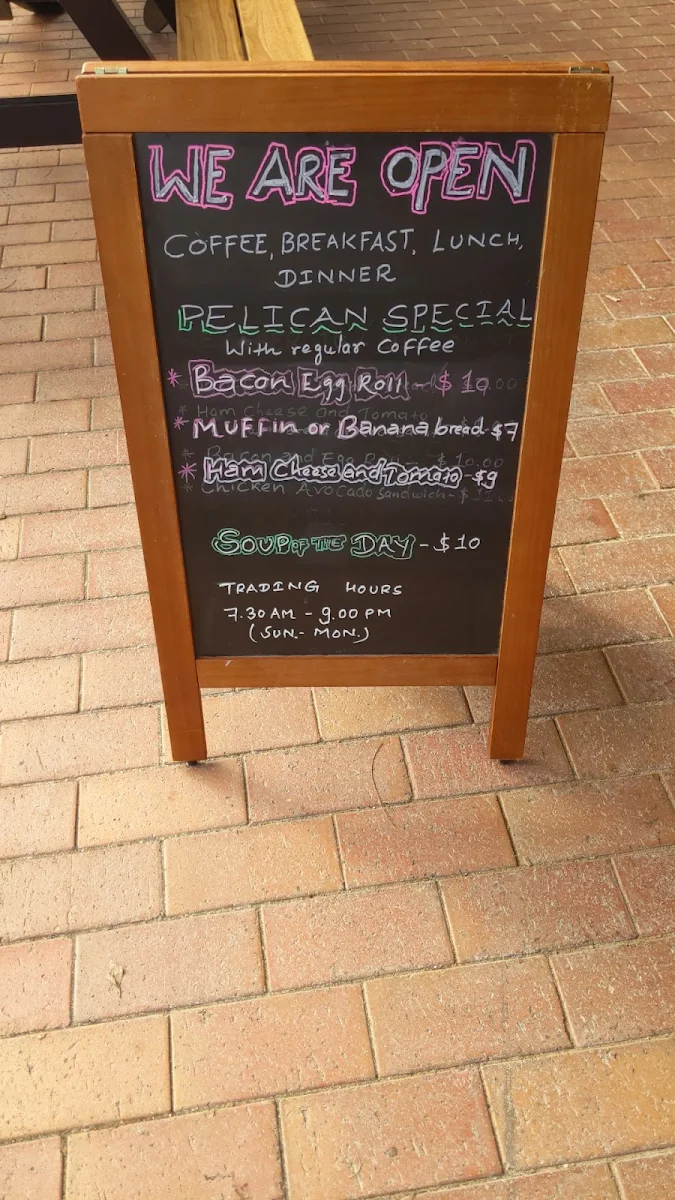 WE ARE OPEN
COFFEE, BREAKFAST, LUNCH,
DINNER
PELICAN SPECIAL
With regular coffee
* Bacon Egg Roll - $10
Ham Cheese and Tomato
* Muffin or Banana bread - $7
Bacon and Egg Roll - $10.00
* Ham Cheese and Tomato - $9
Chicken Avocado Sandwich - $
SOUP OF THE DAY - $10
TRADING HOURS
7.30 AM - 9.00 PM
(SUN.- MON.)